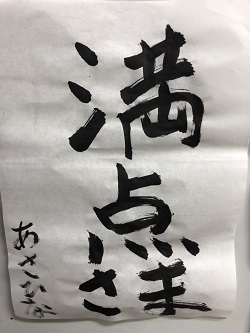 満点さま
あさひな